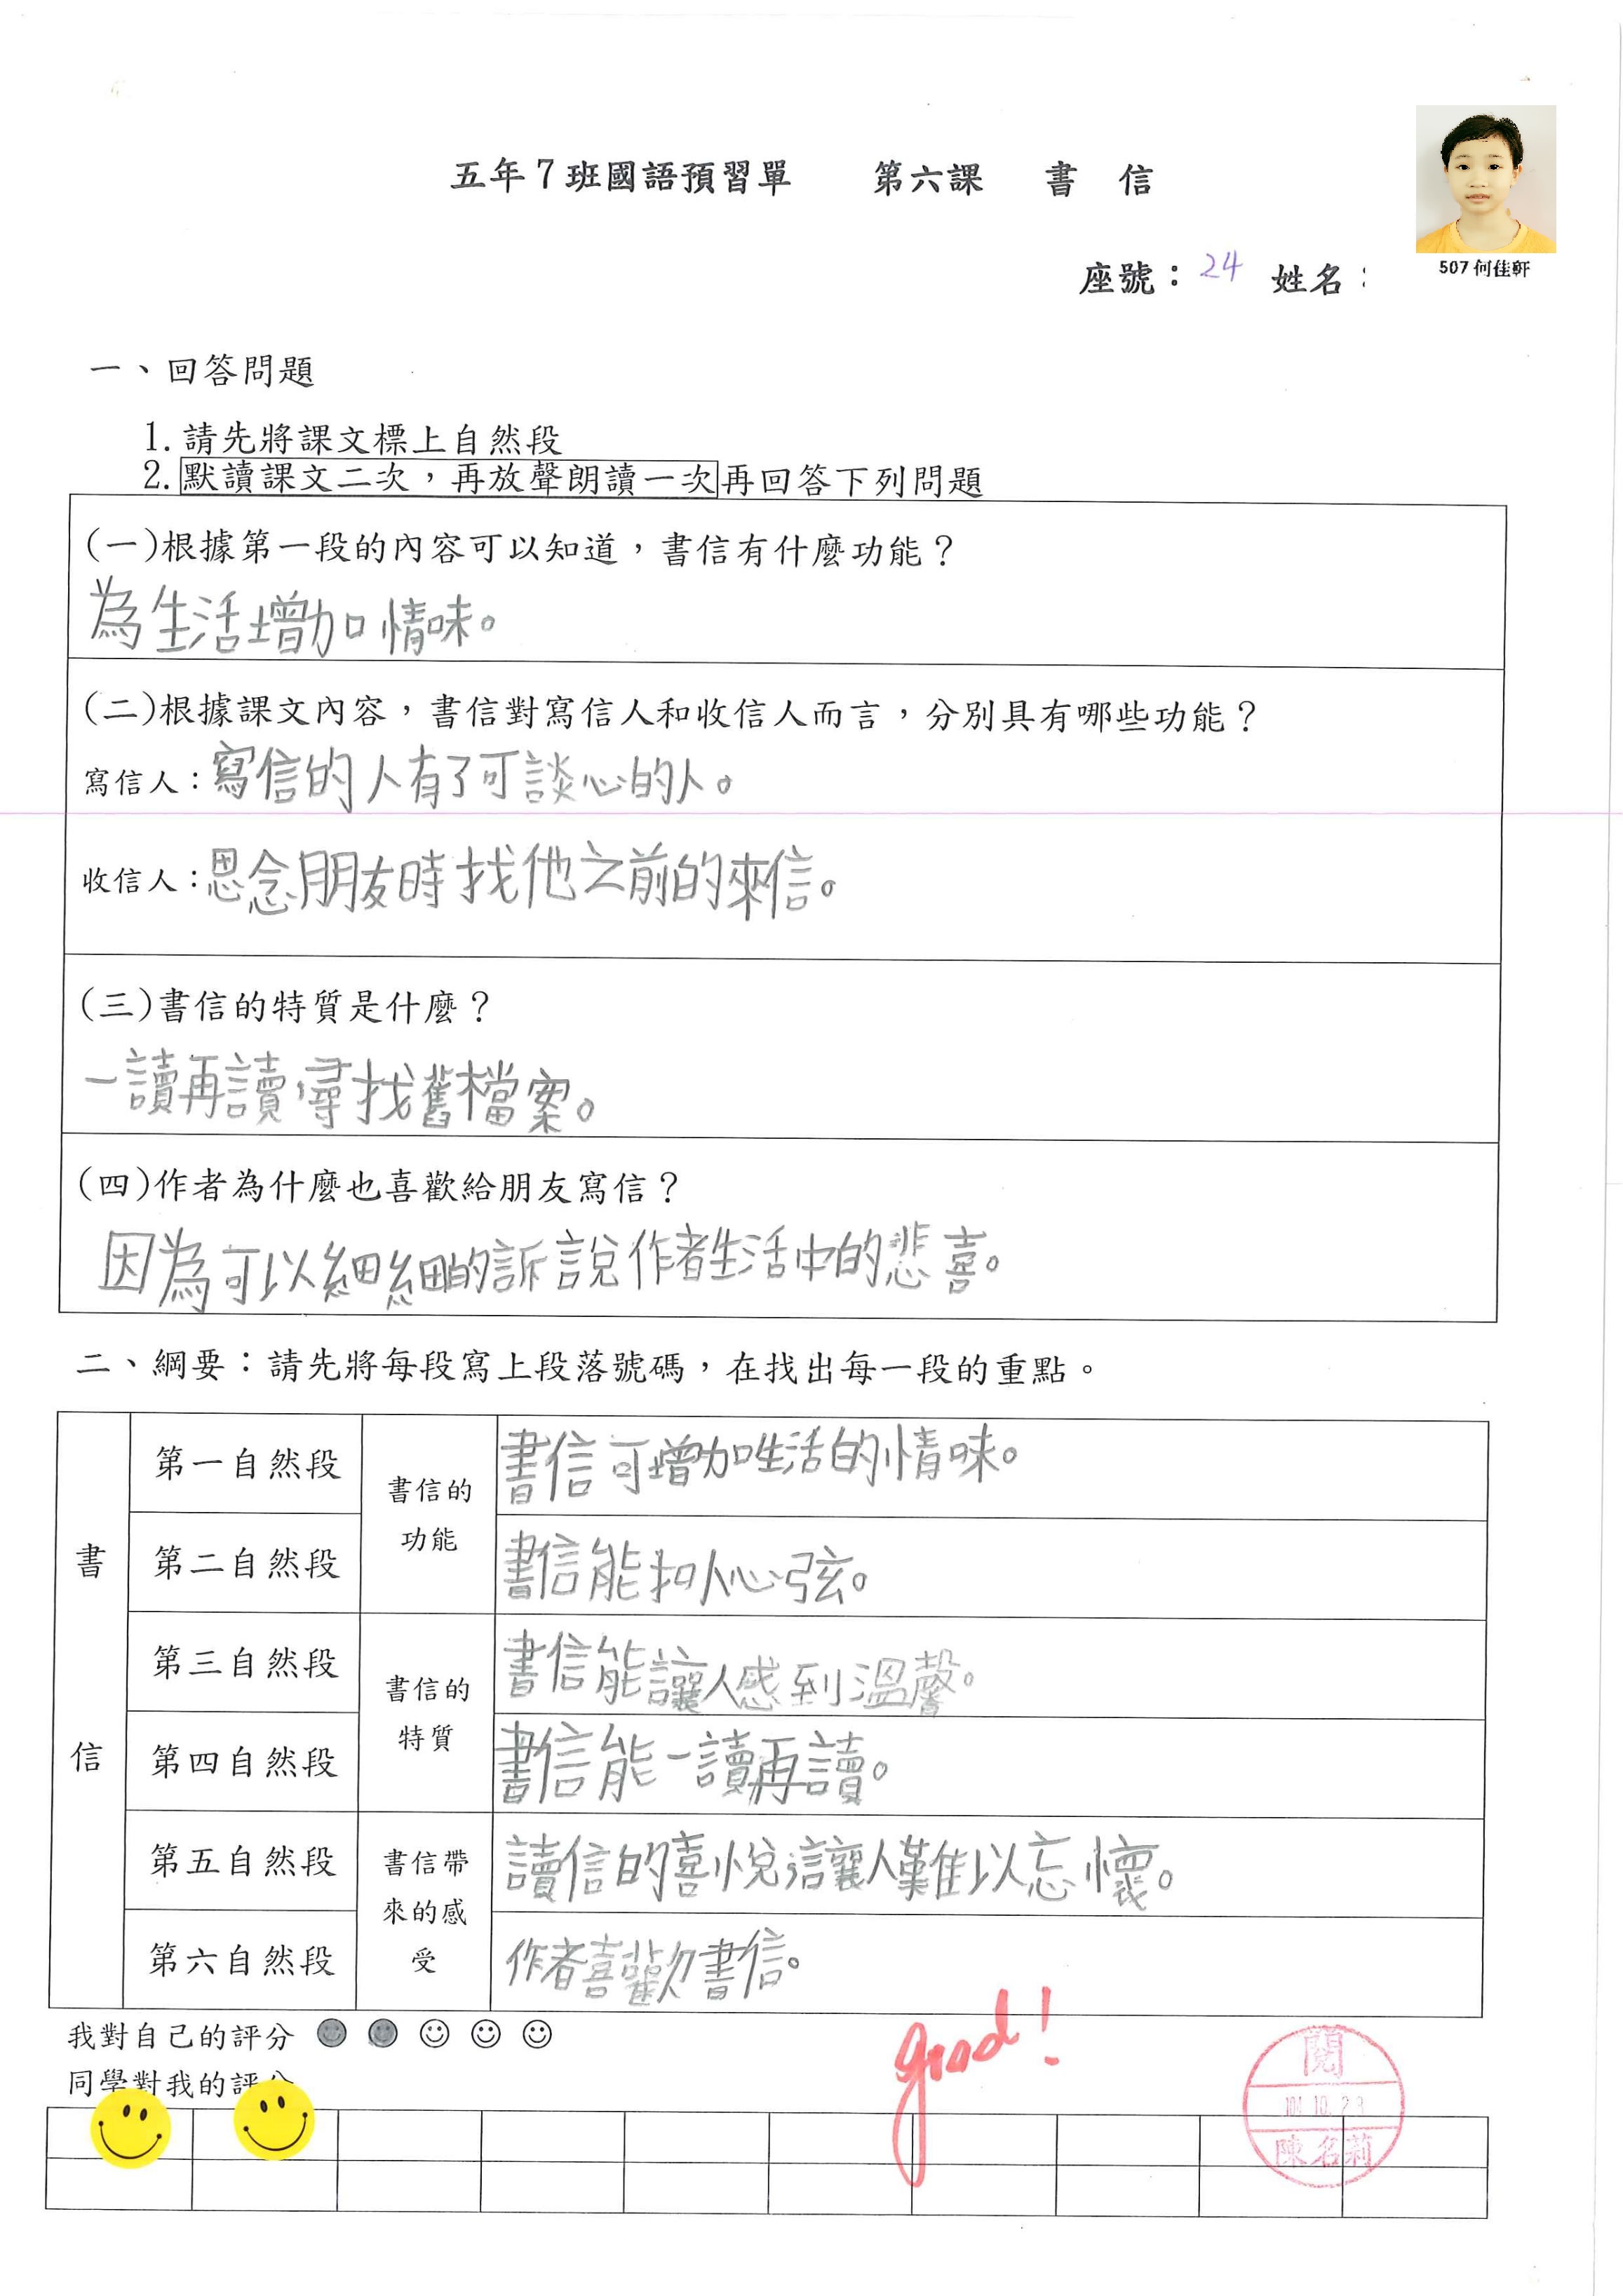 五年7班國語預習單　第六課　書　信
507何佳軒
座號：24　姓名：
一、回答問題
1.請先將課文標上自然段
2.默讀課文二次，再放聲朗讀一次再回答下列問題
(一)根據第一段的內容可以知道，書信有什麼功能？
為生活增加情味。
(二)根據課文內容，書信對寫信人和收信人而言，分別具有哪些功能？
寫信人：寫信的人有了可談心的人。
收信人：思念朋友時找他之前的來信。
(三)書信的特質是什麼？
一讀再讀，尋找舊檔案。
(四)作者為什麼也喜歡給朋友寫信？
因為可以細細的訴說作者生活中的悲喜。
二、綱要：請先將每段寫上段落號碼，在找出每一段的重點。
書信
第一自然段
書信的功能
書信可增加生活的情味。
第二自然段
書信能扣人心弦。
第三自然段
書信的特質
書信能讓人感到溫馨。
第四自然段
書信能一讀再讀。
第五自然段
書信帶來的感受
讀信的喜悅，讓人難以忘懷。
第六自然段
作者喜歡書信。
我對自己的評分
同學對我的評分
good!
閱
10.23
陳名莉